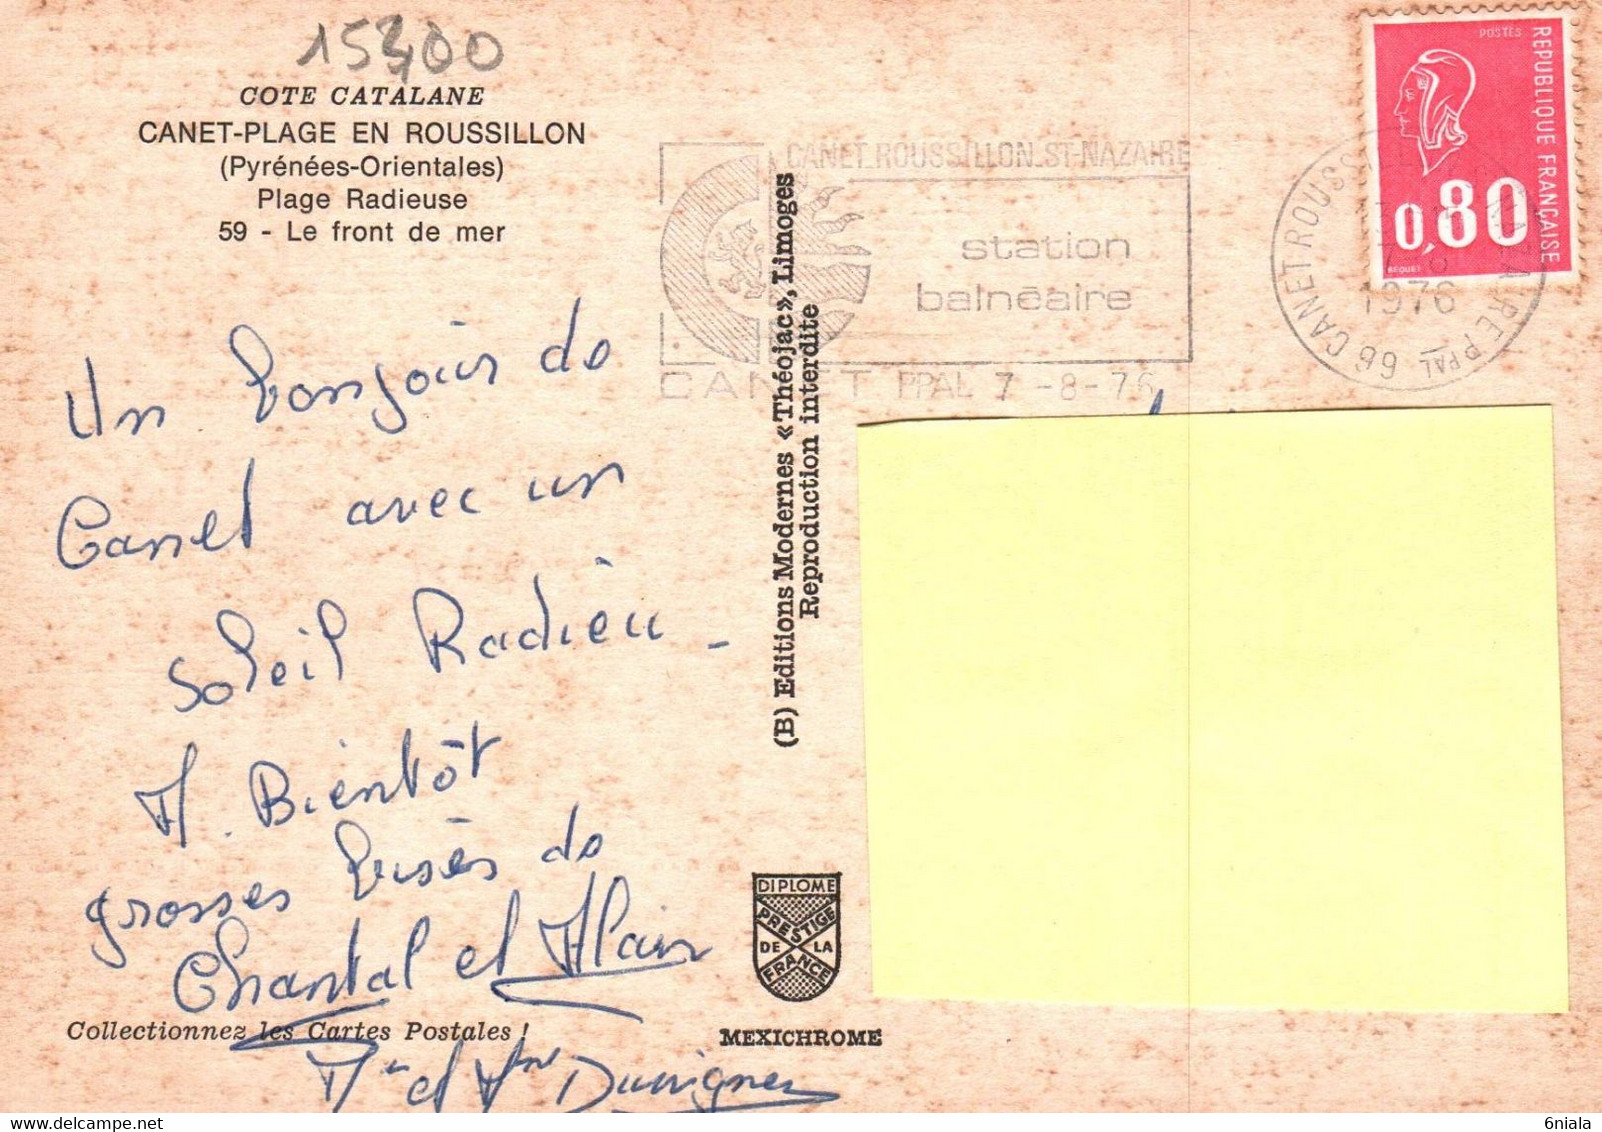 15300
COTE CATALANE
CANET-PLAGE EN ROUSSILLON
(Pyrénées-Orientales)
Plage Radieuse
59 - Le front de mer
Un bonjour de
Canet avec un
Soleil Radieu -
A. Bientôt
grosses bises de
Chantal et Alain
Collectionnez les Cartes Postales !
Mr et Mme
(B) Editions Modernes «Théojac», Limoges
Reproduction interdite
DIPLOME
PRESTIGE
DE LA
FRANCE
MEXICHROME
CANET ROUSSILLON ST-NAZAIRE
station
balnéaire
CANET PPAL 7 -8-76
POSTES
REPUBLIQUE FRANÇAISE
0,80
BEQUET
66 CANET ROUSSILLON ST NAZAIRE PPAL
1976
6niala